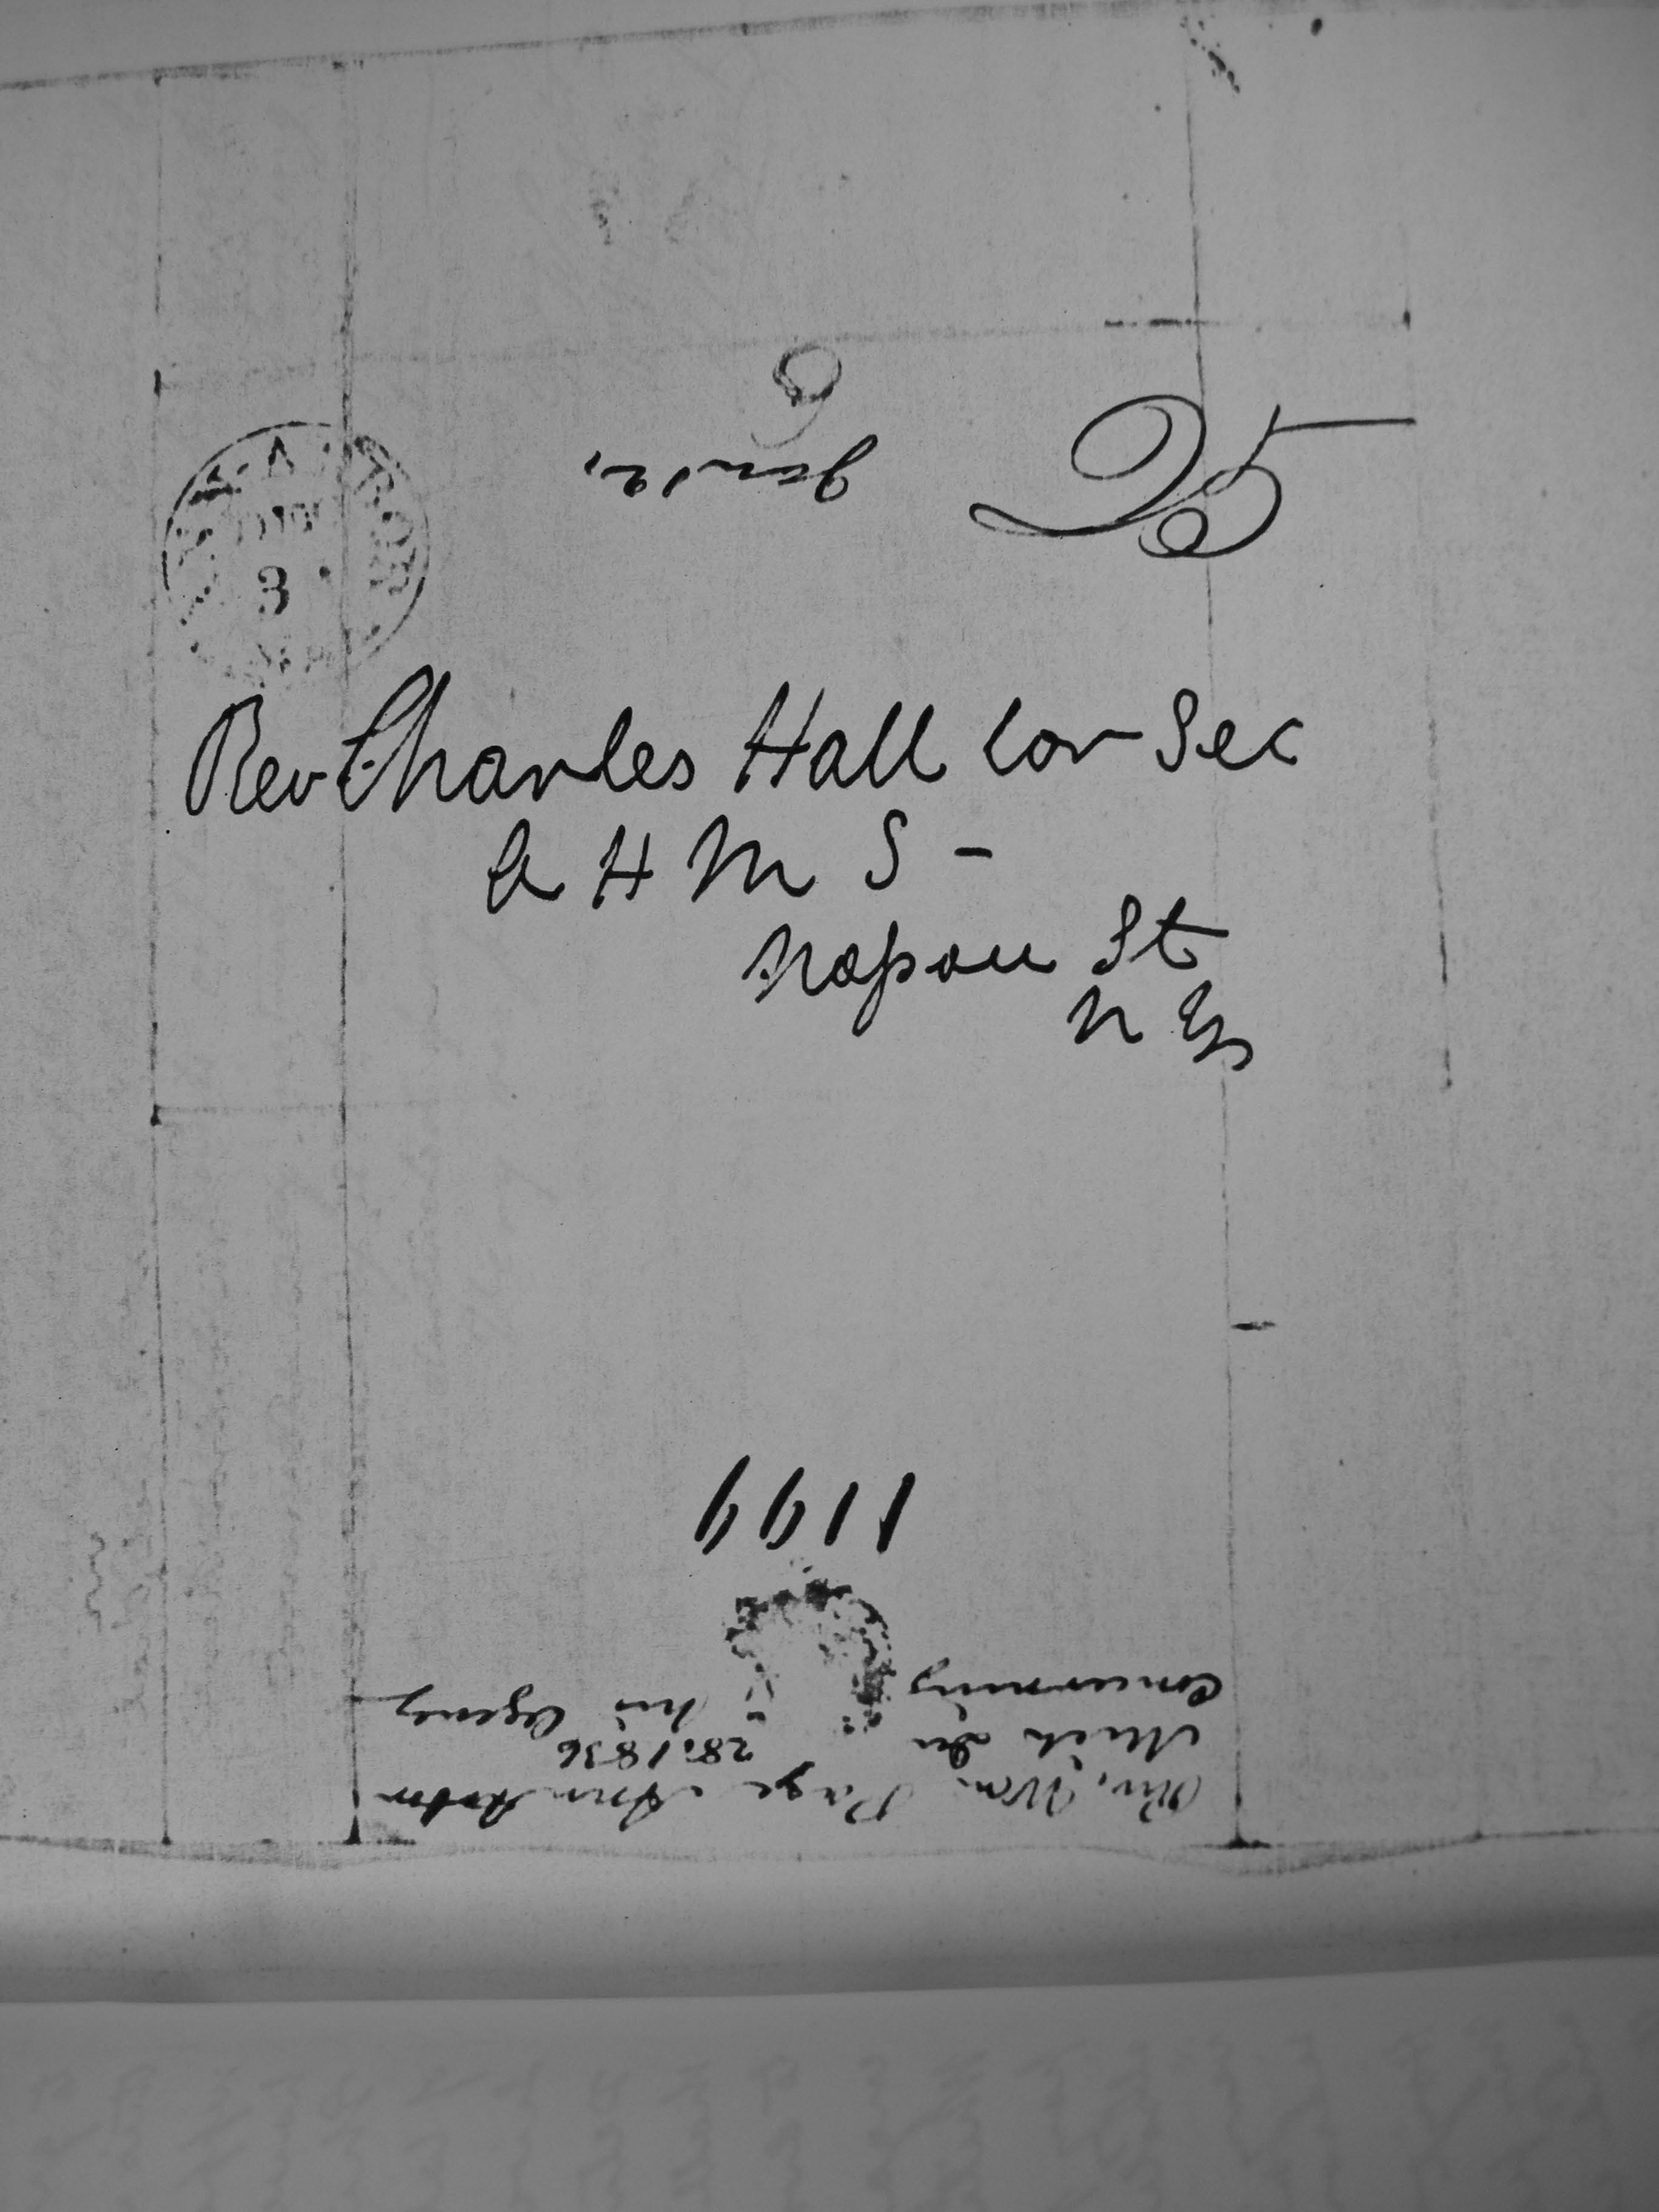 25
Jan 12,
3
Rev Charles Hall Cor Sec
A H M S -
Nassau St
N Y
1199
Rev. Wm. Page Ann Arbor
Mich Dec 28. 1836
Concerning his Agency